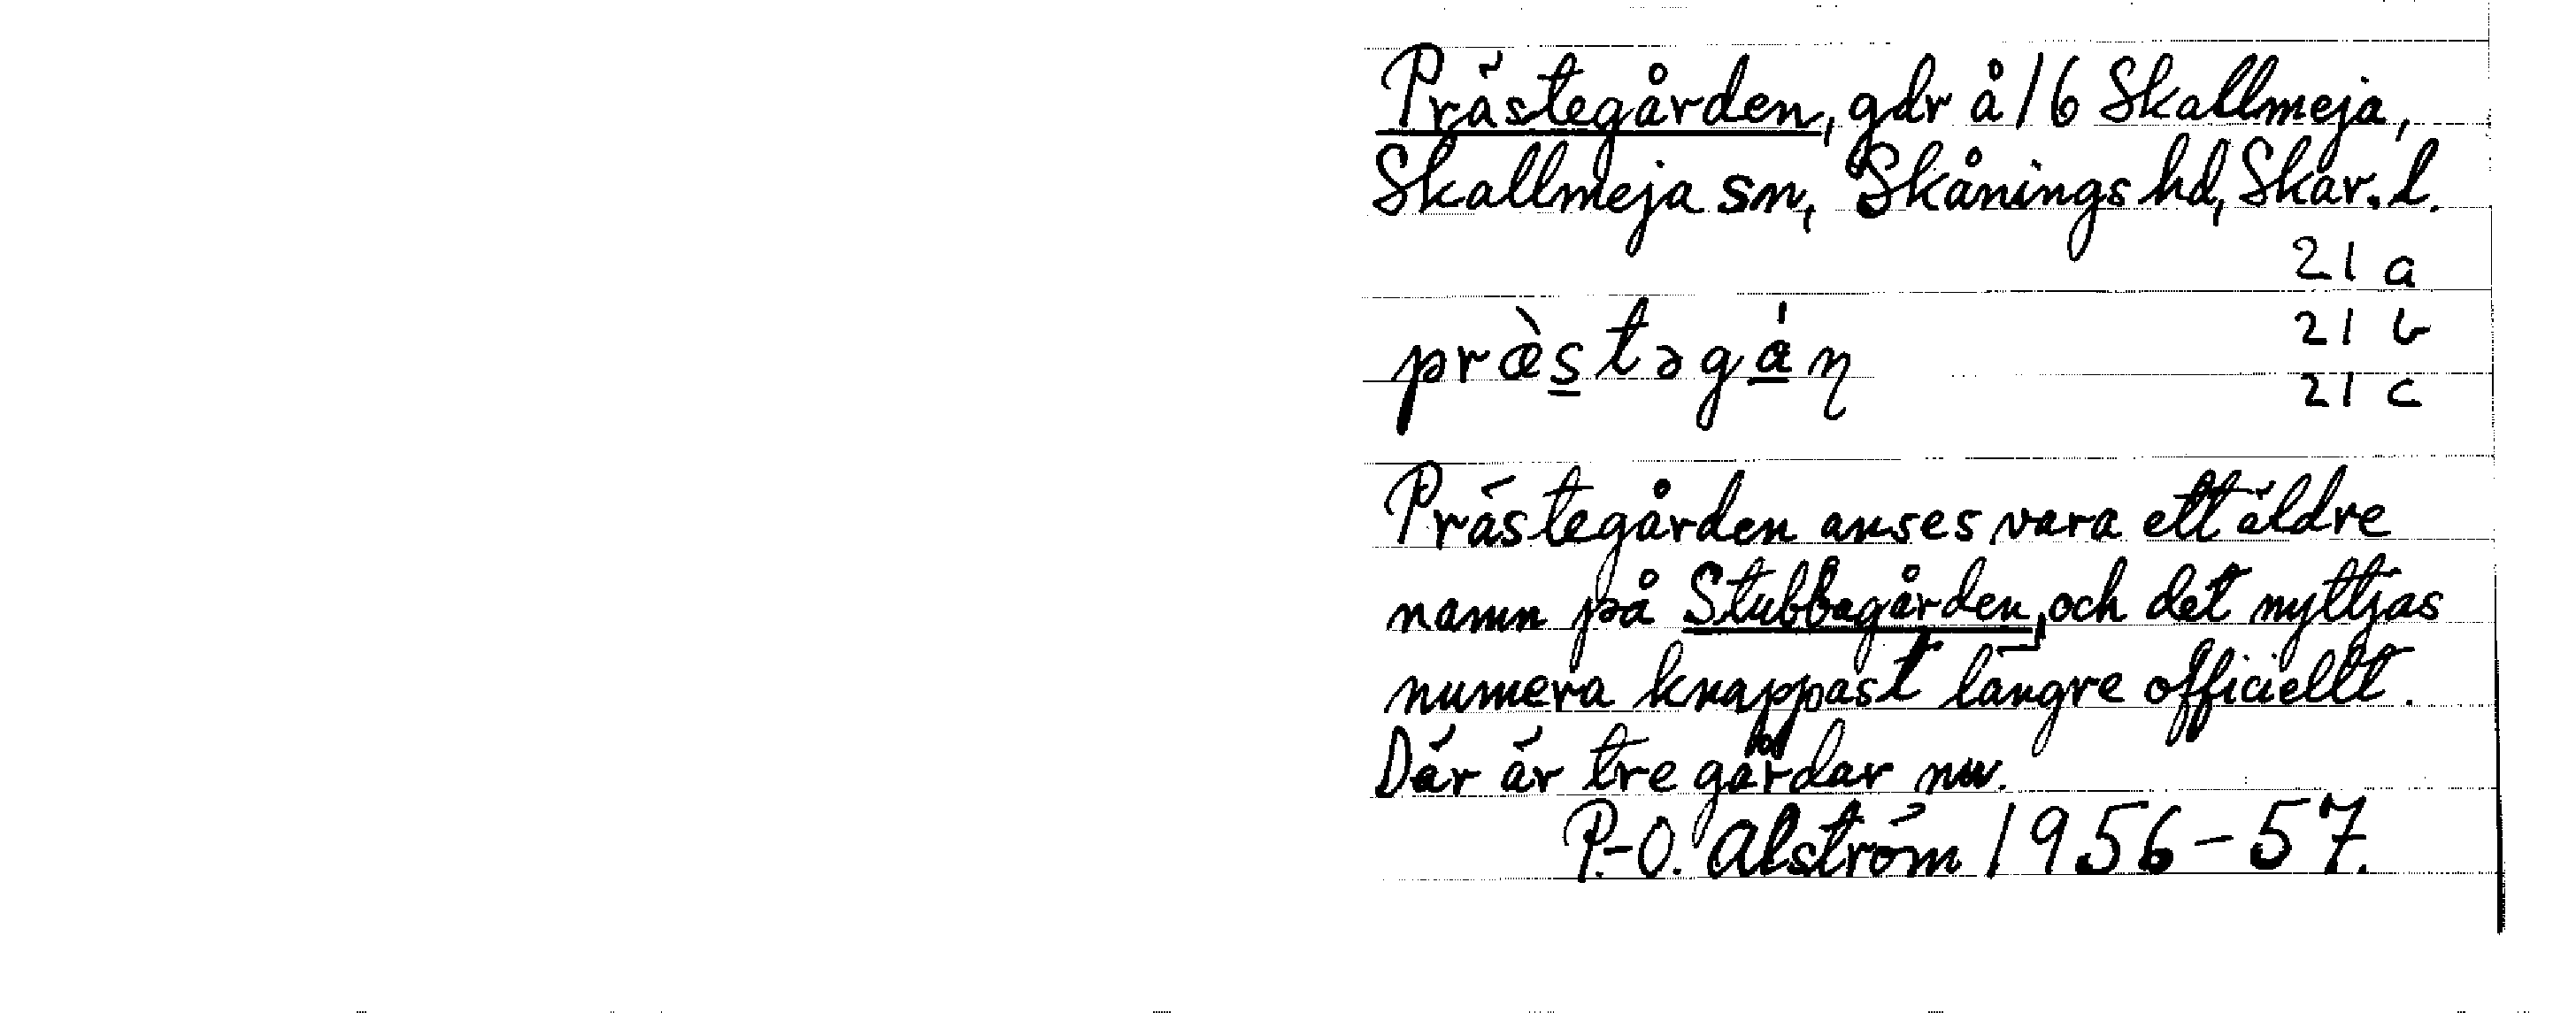 Prästegården, gdr å 1 6 Skallmeja,
Skallmeja sn, Skånings hd, Skar. l.
21 a
21 b
21 c
præ̀stəgán
Prästegården anses vara ett äldre
namn på Stubbagården, och det nyttjas
numera knappast längre officiellt.
Där är tre gårdar nu.
P.-O. Alström 1956-57.